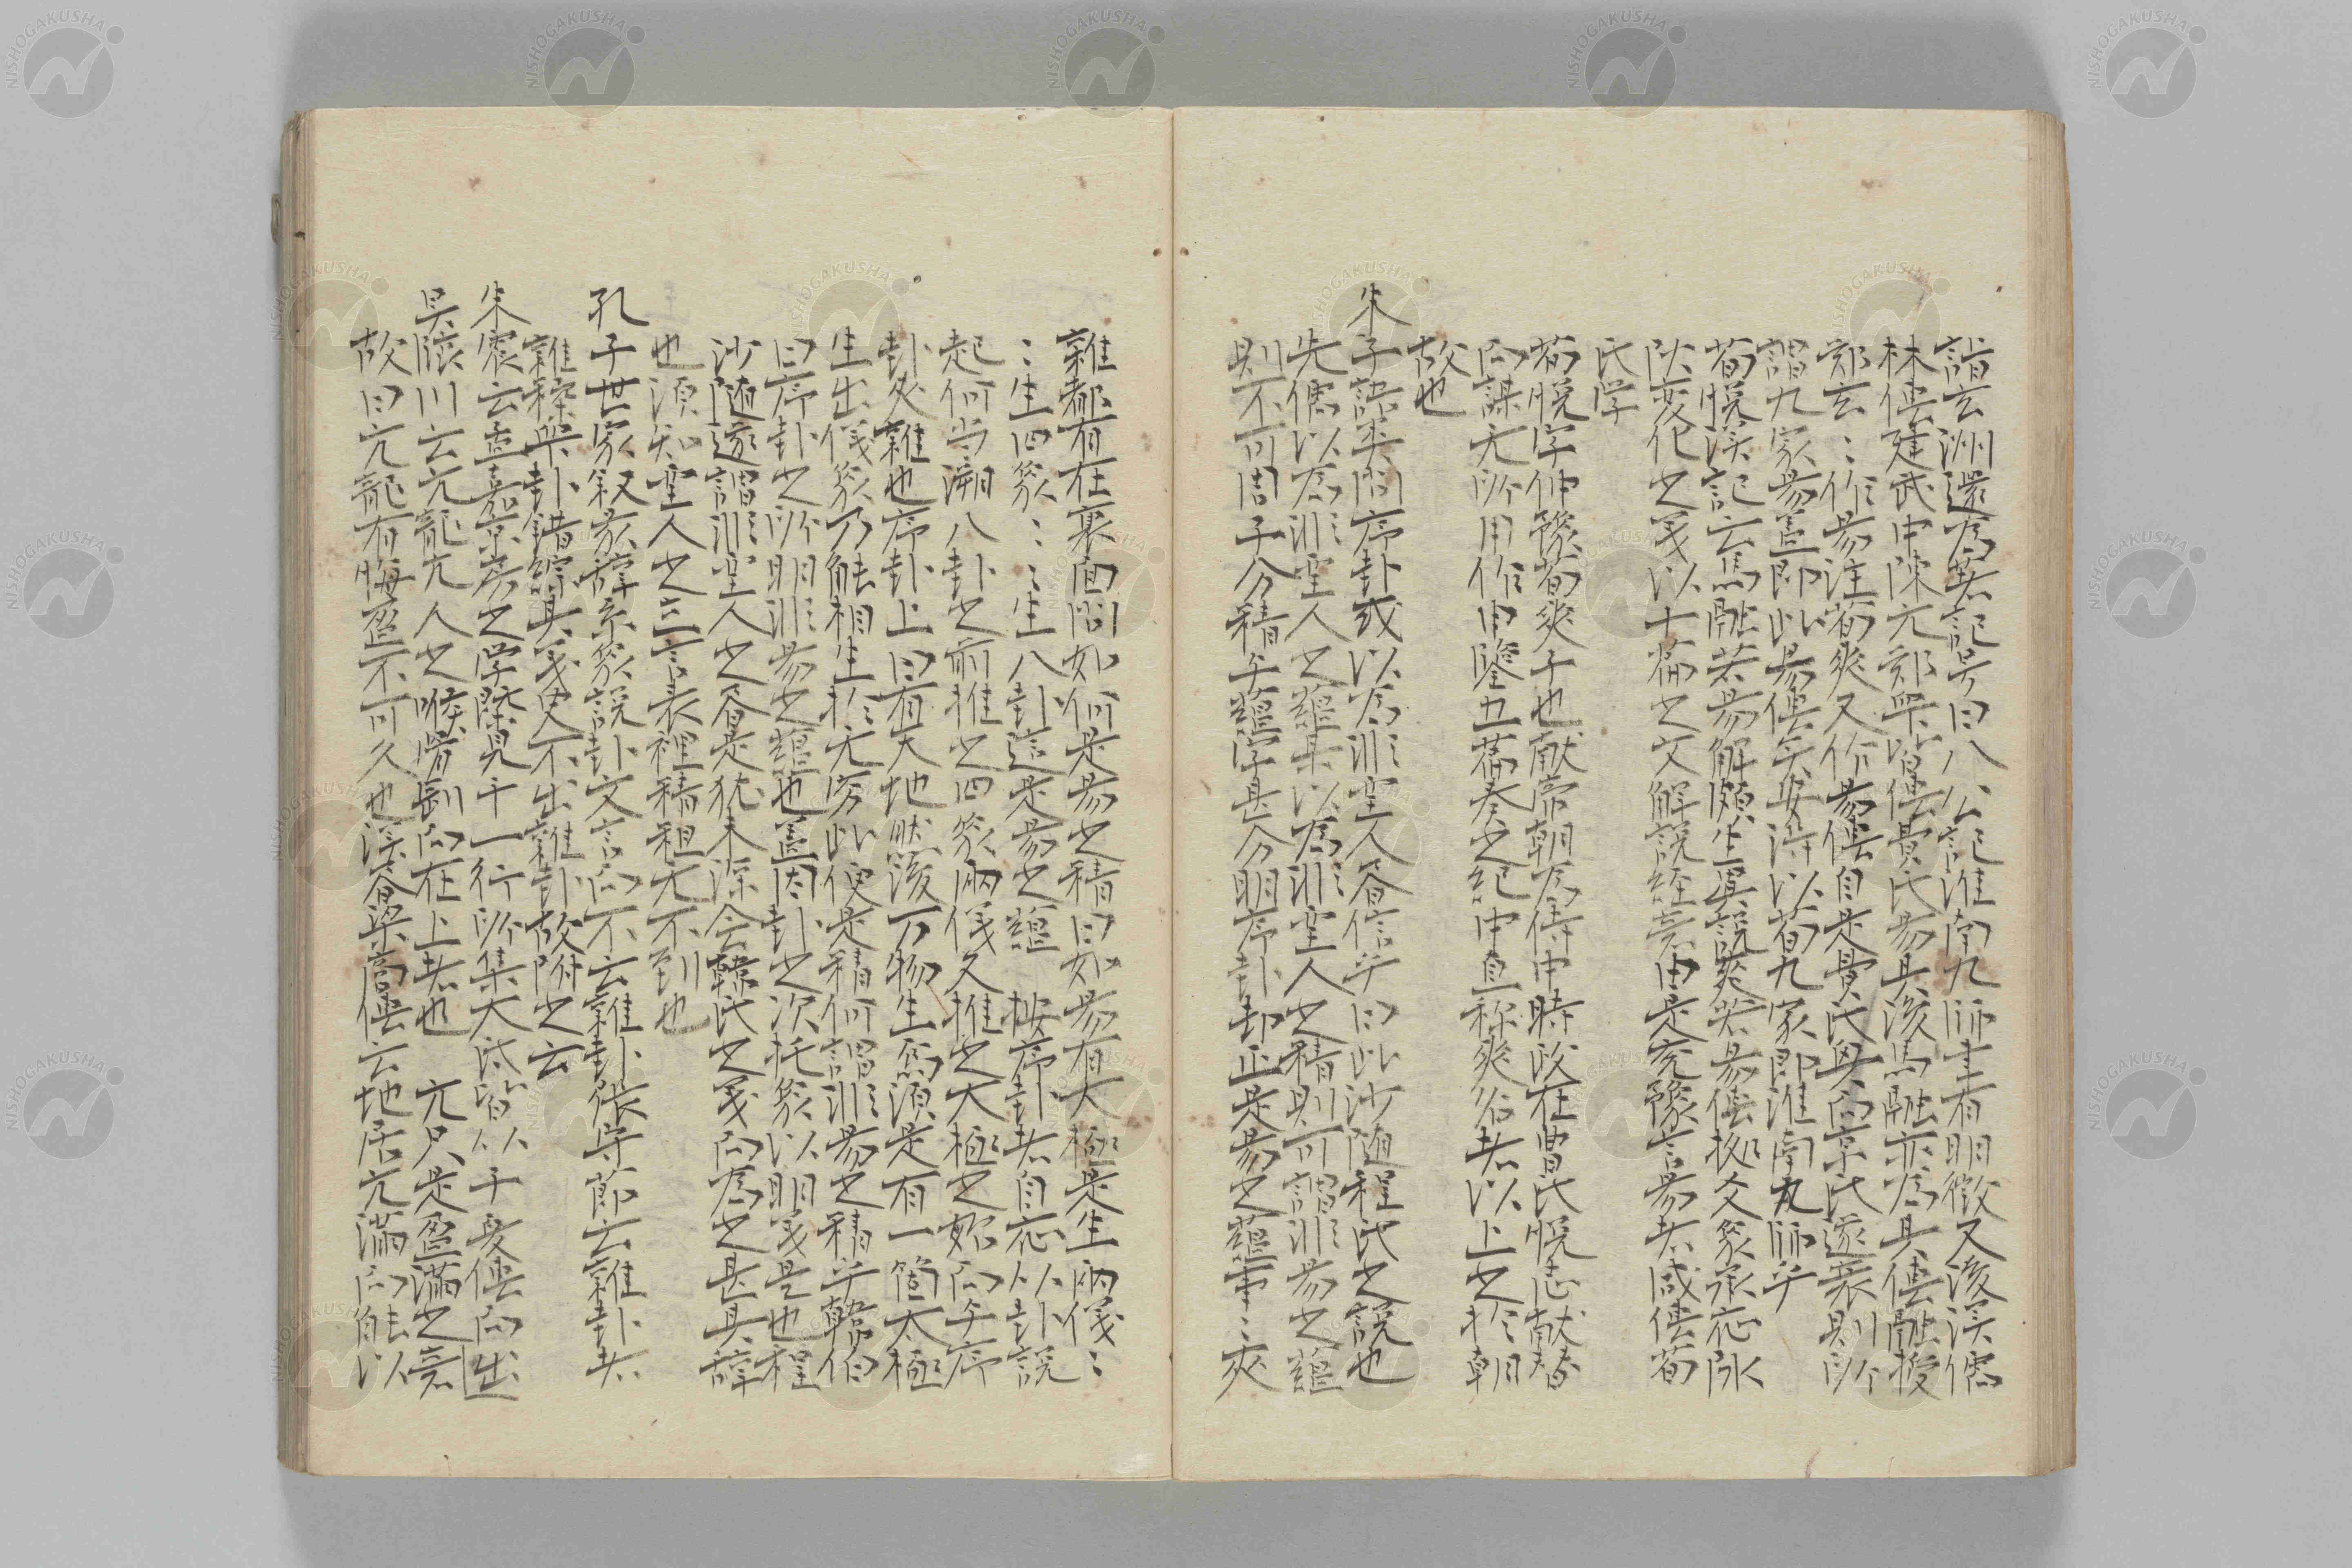 詣玄洲還為著記号曰八公記淮南九師書有明徴又後漢儒
林傳建武中陳元鄭衆皆傳費氏易其後馬融亦為其傳融授
鄭玄〻作易注荀爽又作易傳自是費氏興而京氏遂衰則所
謂九家易蓋即此易傳矣安得以荀九家即淮南九師乎
荀悦漢記云馬融著易解頗生異説爽著易傳拠爻象承応陰
陽変化之義以十篇之文解説経意由是兗豫言易者咸傳荀
氏学
荀悦字仲豫荀爽子也献帝朝為侍中時政在曹氏悦志献替
而謀无所用作申鑒五篇奏之紀中直称爽名者以上之於朝
故也
朱子語類問序卦或以為非聖人之書信乎曰此沙随程氏之説也
先儒以為非聖人之蘊某以為非聖人之精則可謂非易之蘊
則不可周子分精与蘊字甚分明序卦却正是易之蘊事〻夾
雜都有在裏面問如何是易之精曰如易有大極是生両儀〻
〻生四象〻〻生八卦這是易之蘊 按序卦者自応以卦説
起何当溯八卦之前推之四象両儀又推之大極之妙而与序
卦夾雜也序卦上曰有天地然後万物生焉須是有一箇太極
生出儀象乃能相生於无窮此便是精何謂非易之精乎韓伯
曰序卦之所明非易之蘊也蓋因卦之次托象以明義是也程
沙随遂謂非聖人之書是犹未深会韓氏之義而為之甚其辞
也須知聖人之立言表裡精粗无不到也
孔子世家叙彖辞系象説卦文言而不云雜卦張守節云雜卦者
雜糅衆卦錯綜其義史不出雜卦故附之云
朱震云孟嘉京房之学槩見于一行所集大氐皆以子夏傳而出
吴臨川云亢龍亢人之喉骨剛而在上者也 亢只是盈満之意
故曰亢龍有悔盈不可久也漢書梁冀傳云地居亢満而能以